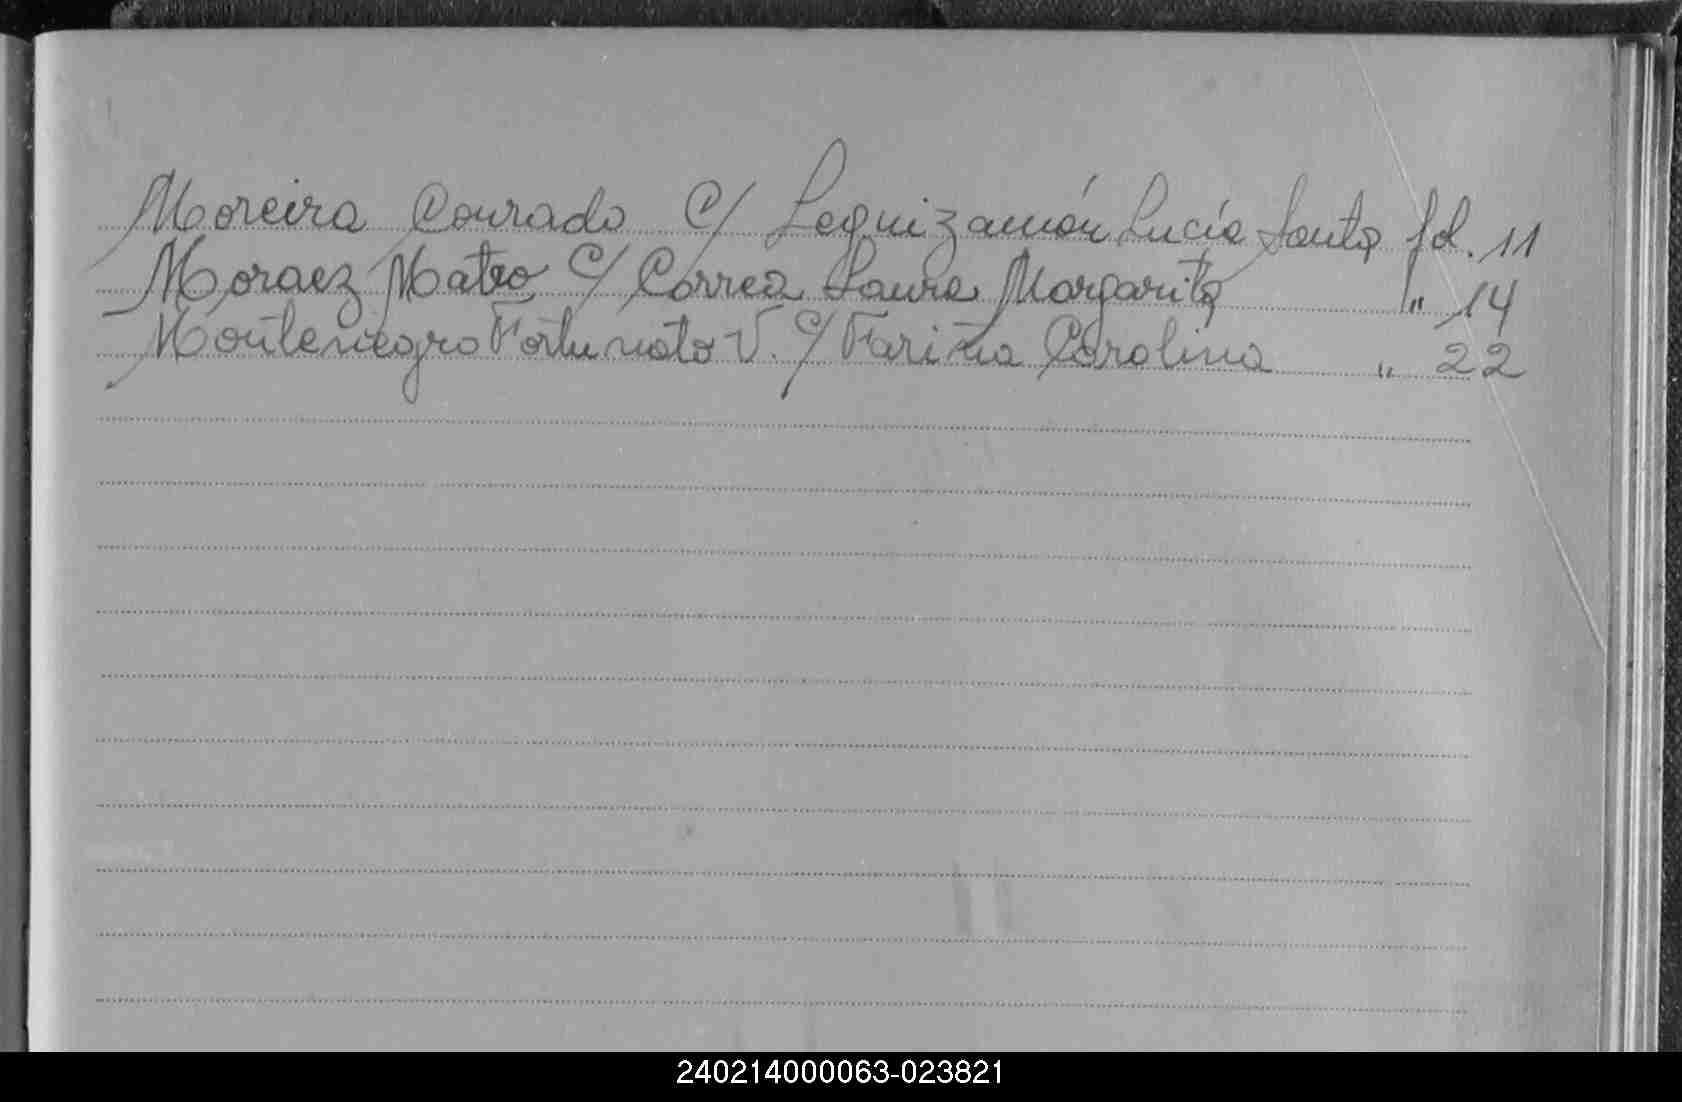 Moreira Conrado C/ Leguizamón Lucía Santa fol. 11
Moraez Mateo C/ Correa Laura Margarita " 14
Montenegro Fortunato V. C/ Fariña Carolina " 22
240214000063-023821